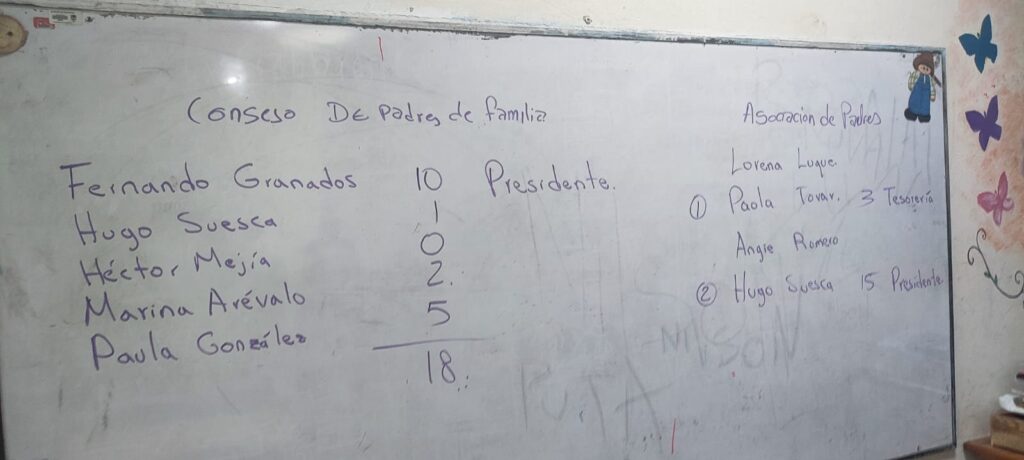 Conseso De padres de familia
Fernando Granados 10 Presidente.
Hugo Suesca 1
Héctor Mejía 0
Marina Arévalo 2.
Paula González 5
18
Asociación de Padres
Lorena Luque.
① Paola Tovar. 3 Tesorería
Angie Romero
② Hugo Suesca 15 Presidente
PUTA